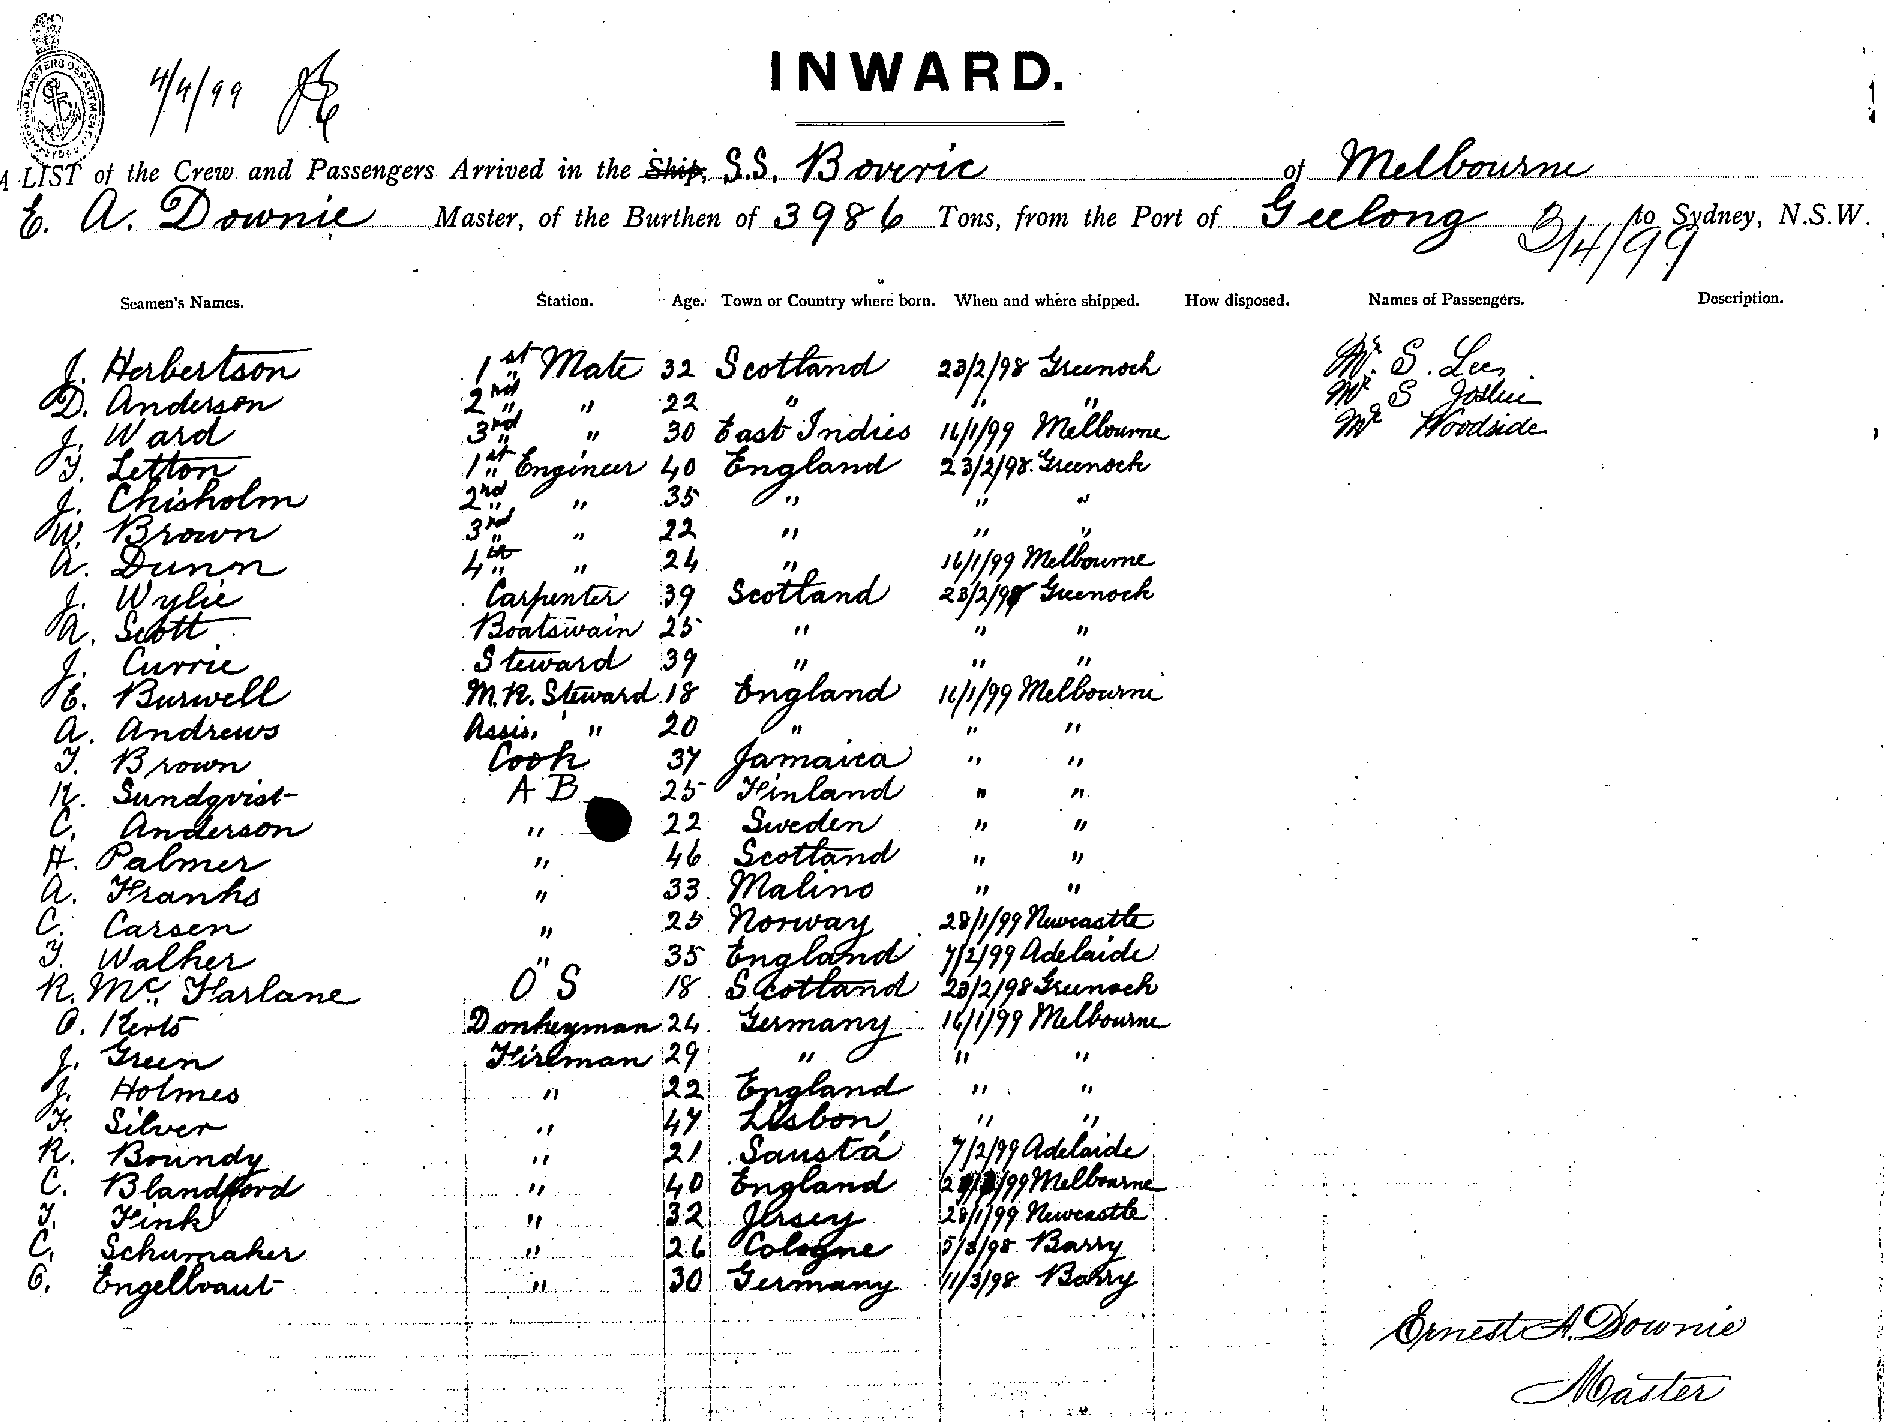 4/4/99
INWARD.
A LIST of the Crew and Passengers Arrived in the Ship, S.S. Boveric of Melbourne
E. A. Downie Master, of the Burthen of 3986 Tons, from the Port of Geelong 3/4/99 to Sydney, N.S.W.
Seamen's Names. Station. Age. Town or Country where born. When and where shipped. How disposed. Names of Passengers. Description.
J. Herbertson 1st Mate 32 Scotland 23/2/98 Greenock Mr. S. Lee
D. Anderson 2nd " " 22 " " " Mr S Joslin
J. Ward 3rd " " 30 East Indies 16/1/99 Melbourne Mr Woodside
T. Letton 1st " Engineer 40 England 23/2/98 Greenock
J. Chisholm 2nd " " 35 " " "
W. Brown 3rd " " 22 " " "
A. Dunn 4th " " 24 " 16/1/99 Melbourne
J. Wylie Carpenter 39 Scotland 23/2/98 Greenock
A. Scott Boatswain 25 " " "
J. Currie Steward 39 " " "
E. Burwell M.R. Steward 18 England 16/1/99 Melbourne
A. Andrews Assis. " 20 " " "
T. Brown Cook 37 Jamaica " "
K. Sundqvist A B 25 Finland " "
C. Anderson " 22 Sweden " "
H. Palmer " 46 Scotland " "
A. Franks " 33 Malino " "
C. Carsen " 25 Norway 28/1/99 Newcastle
T. Walker " 35 England 7/2/99 Adelaide
R. Mc Farlane O S 18 Scotland 23/2/98 Greenock
O. Kerts Donkeyman 24 Germany 16/1/99 Melbourne
J. Green Fireman 29 " " "
J. Holmes " 22 England " "
F. Silver " 47 Lisbon " "
R. Boundy " 21 Sausta 7/2/99 Adelaide
C. Blandford " 40 England Melbourne
T. Fink " 32 Jersey 28/1/99 Newcastle
C. Schumaker " 26 Cologne Barry
O. Engelbvaut " 30 Germany 11/3/98 Barry
Ernest A. Downie
Master